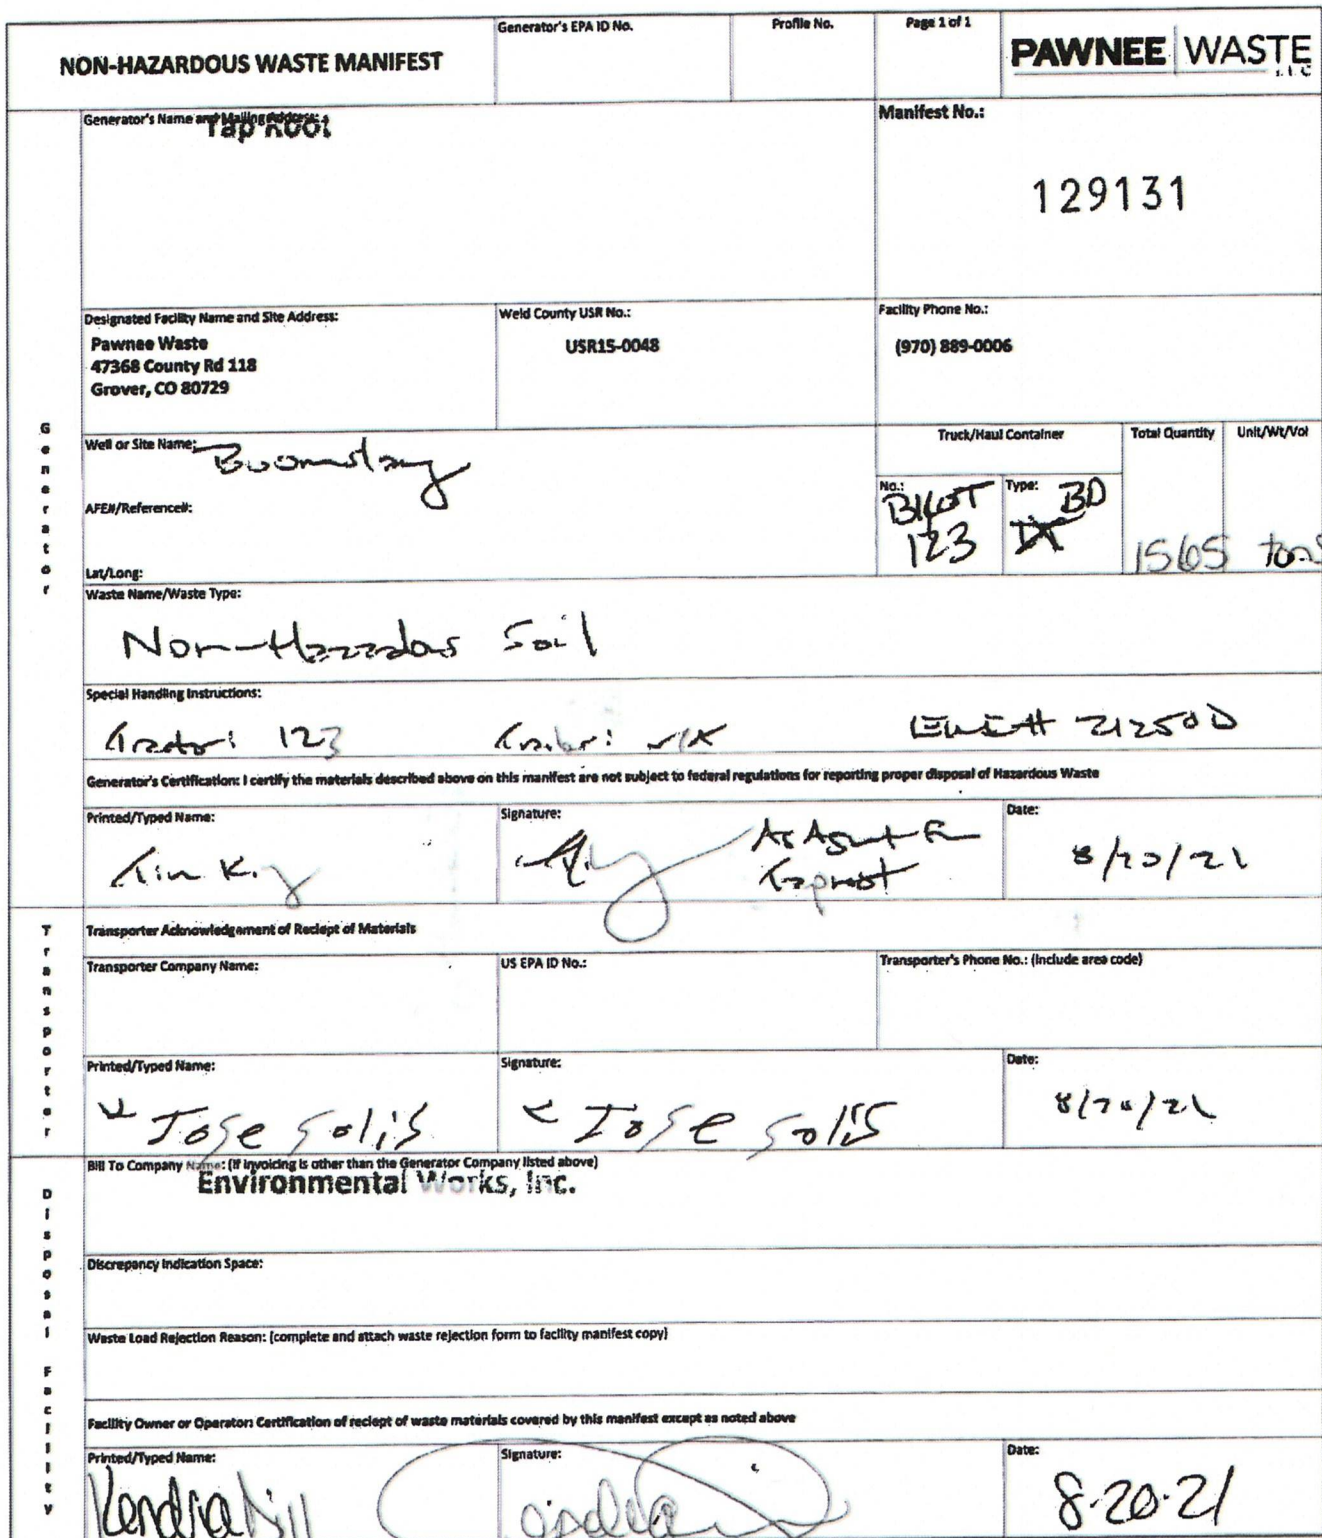 NON-HAZARDOUS WASTE MANIFEST
Generator's EPA ID No.
Profile No.
Page 1 of 1
PAWNEE WASTE
LLC
Generator's Name and Mailing Address:
Tap Root
Manifest No.:
129131
Designated Facility Name and Site Address:
Pawnee Waste
47368 County Rd 118
Grover, CO 80729
Weld County USR No.:
USR15-0048
Facility Phone No.:
(970) 889-0006
Generator
Well or Site Name:
AFE#/Reference#:
Lat/Long:
Truck/Haul Container
No.:
123
Type:
BD
Total Quantity
Unit/Wt/Vol
tons
Waste Name/Waste Type:
Non-Hazardous Soil
Special Handling Instructions:
Tractor: 123
Trailer: N/A
21250D
Generator's Certification: I certify the materials described above on this manifest are not subject to federal regulations for reporting proper disposal of Hazardous Waste
Printed/Typed Name:
Signature:
As Agent For
Taproot
Date:
8/20/21
Transporter
Transporter Acknowledgement of Reciept of Materials
Transporter Company Name:
US EPA ID No.:
Transporter's Phone No.: (include area code)
Printed/Typed Name:
Jose Solis
Signature:
Jose Solis
Date:
8/20/21
Disposal Facility
Bill To Company Name: (If invoicing is other than the Generator Company listed above)
Environmental Works, Inc.
Discrepancy Indication Space:
Waste Load Rejection Reason: (complete and attach waste rejection form to facility manifest copy)
Facility Owner or Operator: Certification of reciept of waste materials covered by this manifest except as noted above
Printed/Typed Name:
Kendra
Signature:
Date:
8-20-21